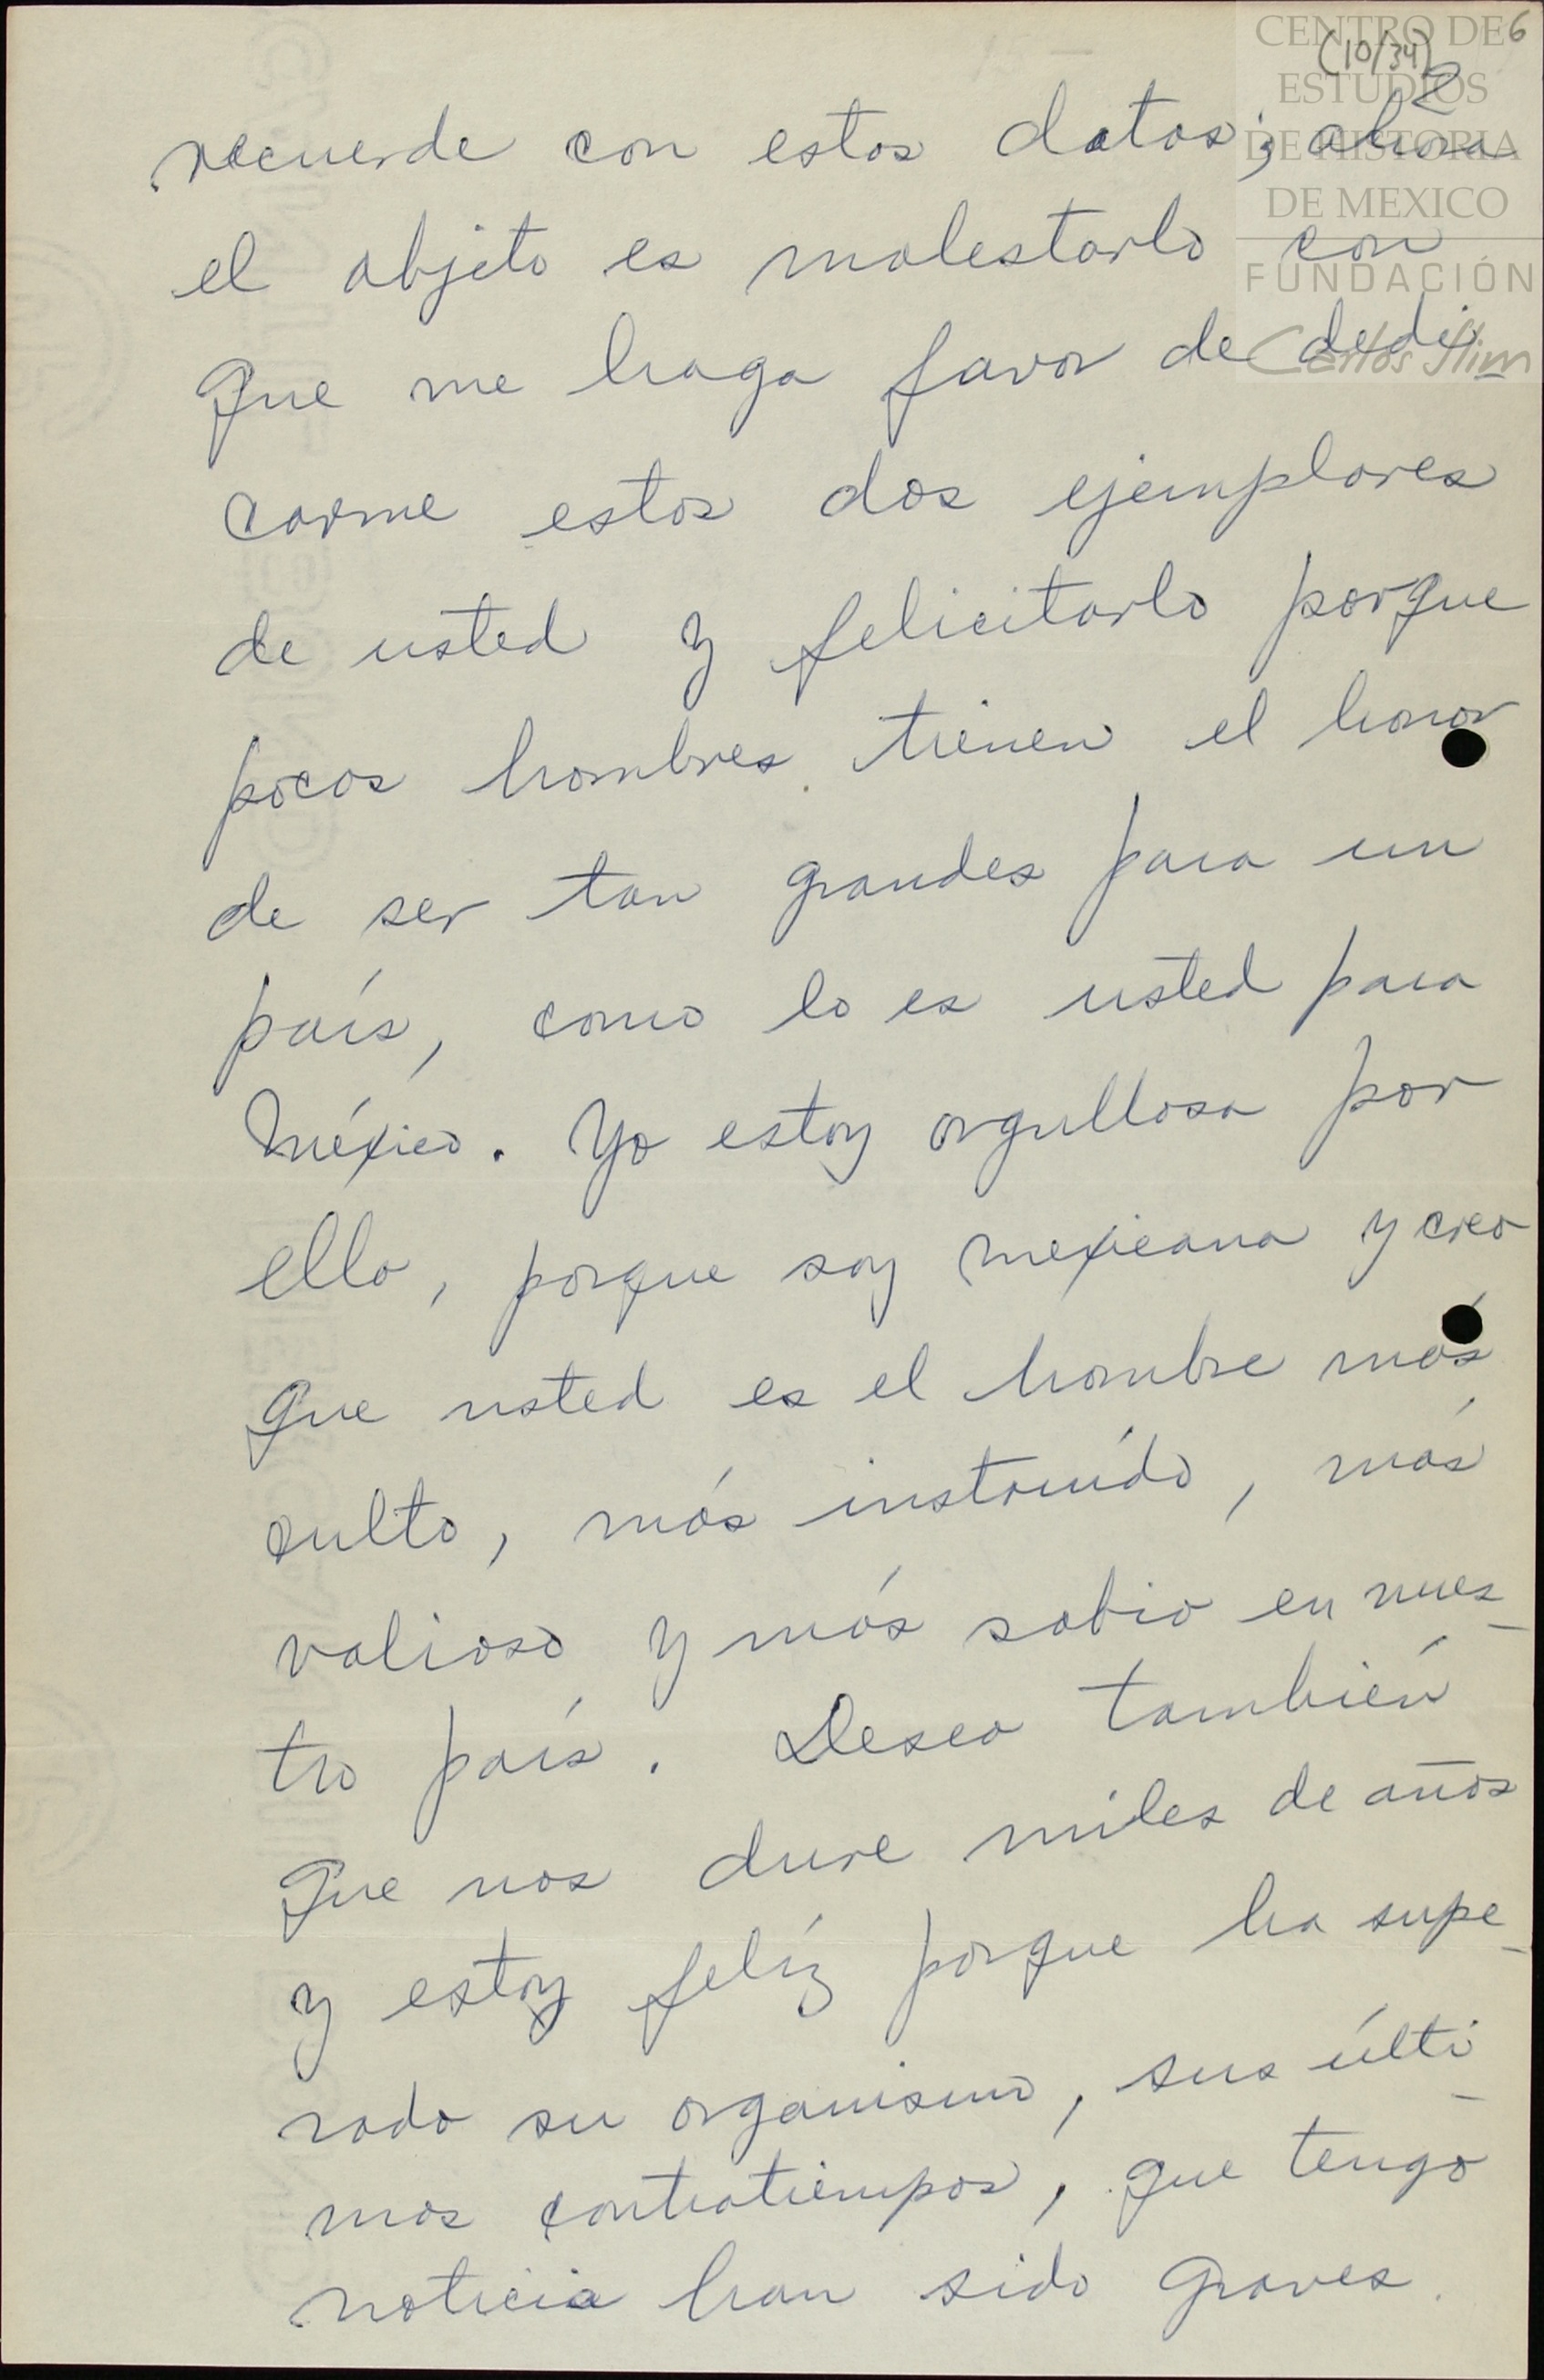 CENTRO DE 6
(10/34)
ESTUDIOS 2
DE HISTORIA
DE MEXICO
FUNDACIÓN
Carlos Slim
recuerde con estos datos; ahora
el objeto es molestarlo con
que me haga favor de dedi
carme estos dos ejemplares
de usted y felicitarlo porque
pocos hombres tienen el honor
de ser tan grandes para un
país, como lo es usted para
México. Yo estoy orgullosa por
ello, porque soy mexicana y creo
que usted es el hombre más
culto, más instruído, más
valioso y más sabio en nues-
tro país. Deseo también
que nos dure miles de años
y estoy felíz porque ha supe-
rado su organismo, sus últi-
mos contratiempos, que tengo
noticia han sido graves.